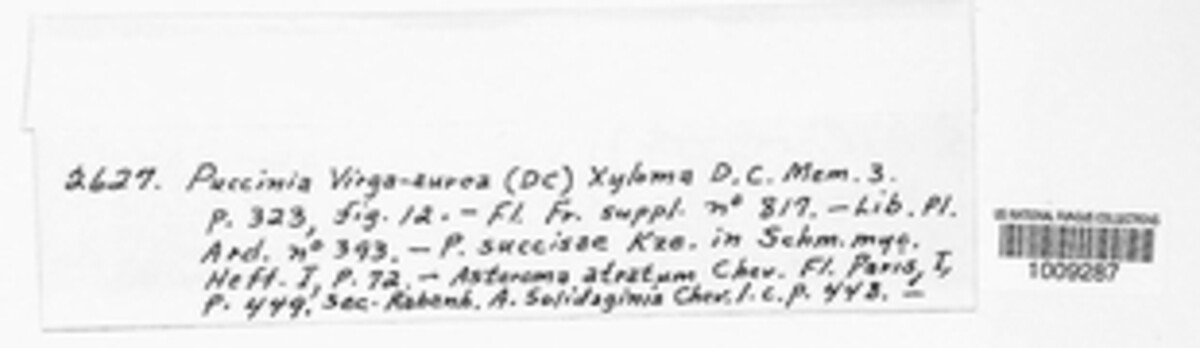 2627. Puccinia Virga-aurea (DC) Xyloma D.C. Mem. 3.
p. 323, fig. 12. — Fl. Fr. suppl. nº 817. — Lib. Pl.
Ard. nº 393. — P. succisae Kze. in Schm. myc.
Heft. I, P. 72. — Asteroma atratum Chev. Fl. Paris, I,
P. 449. Sec. Rabenh. A. Solidaginis Chev. l. c. p. 448. —
US NATIONAL FUNGUS COLLECTIONS
1009287